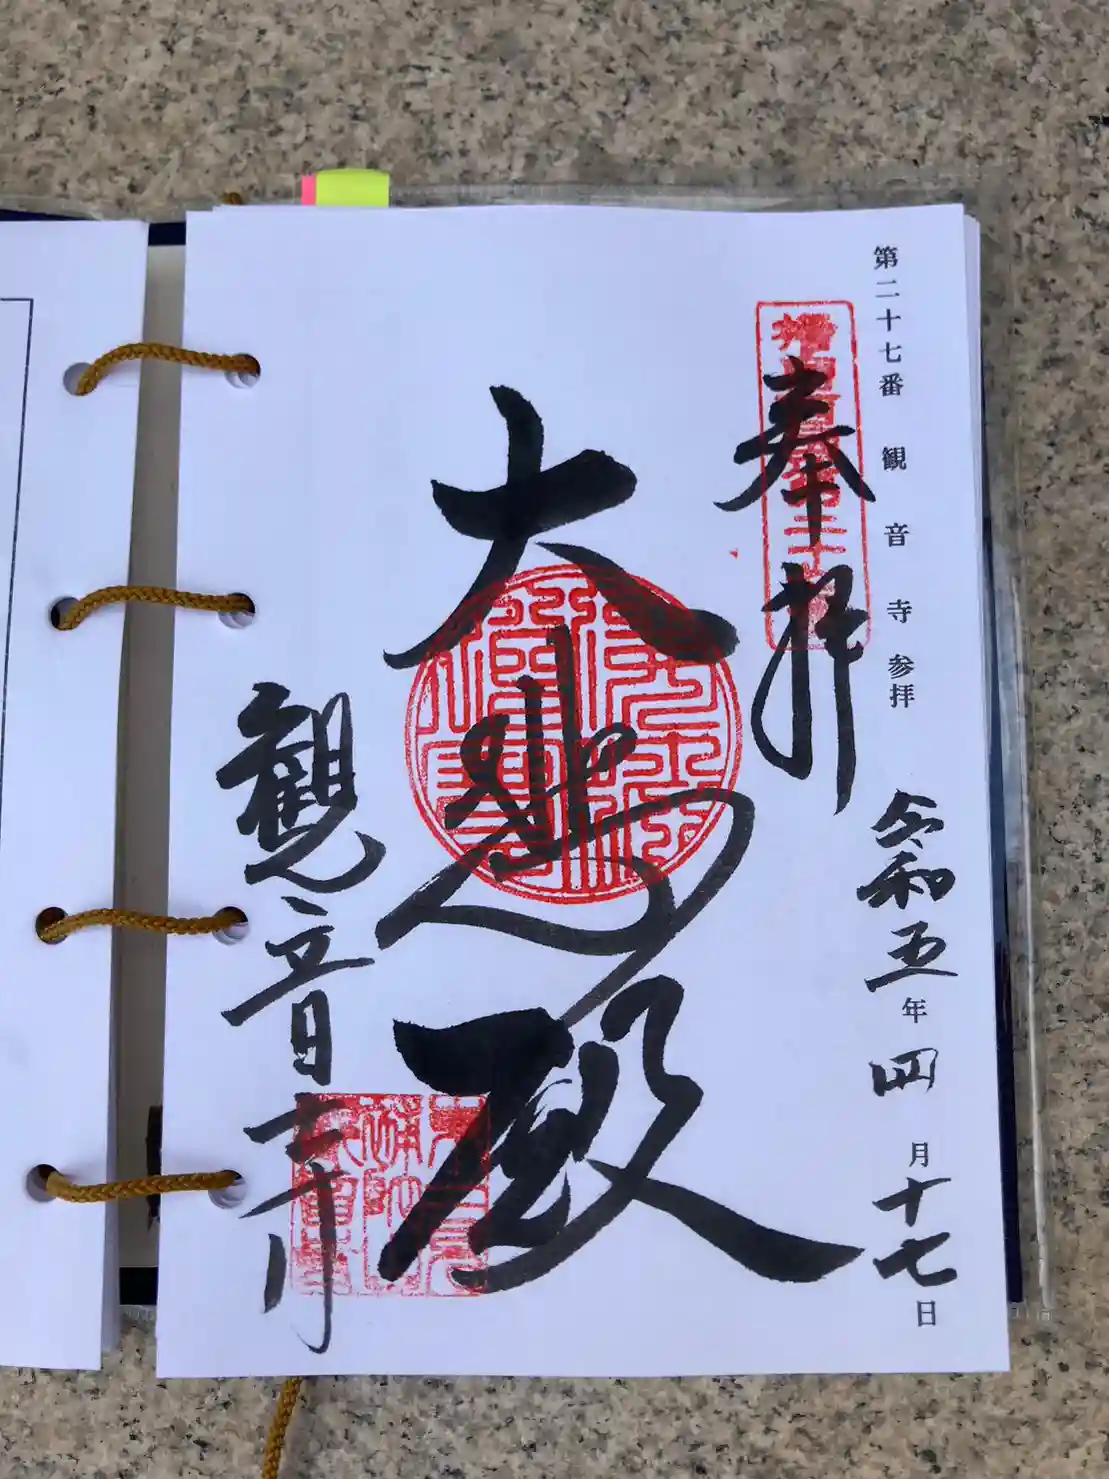 第二十七番 観音寺参拝 令和五年四月十七日
奉拝
大悲殿
観音寺